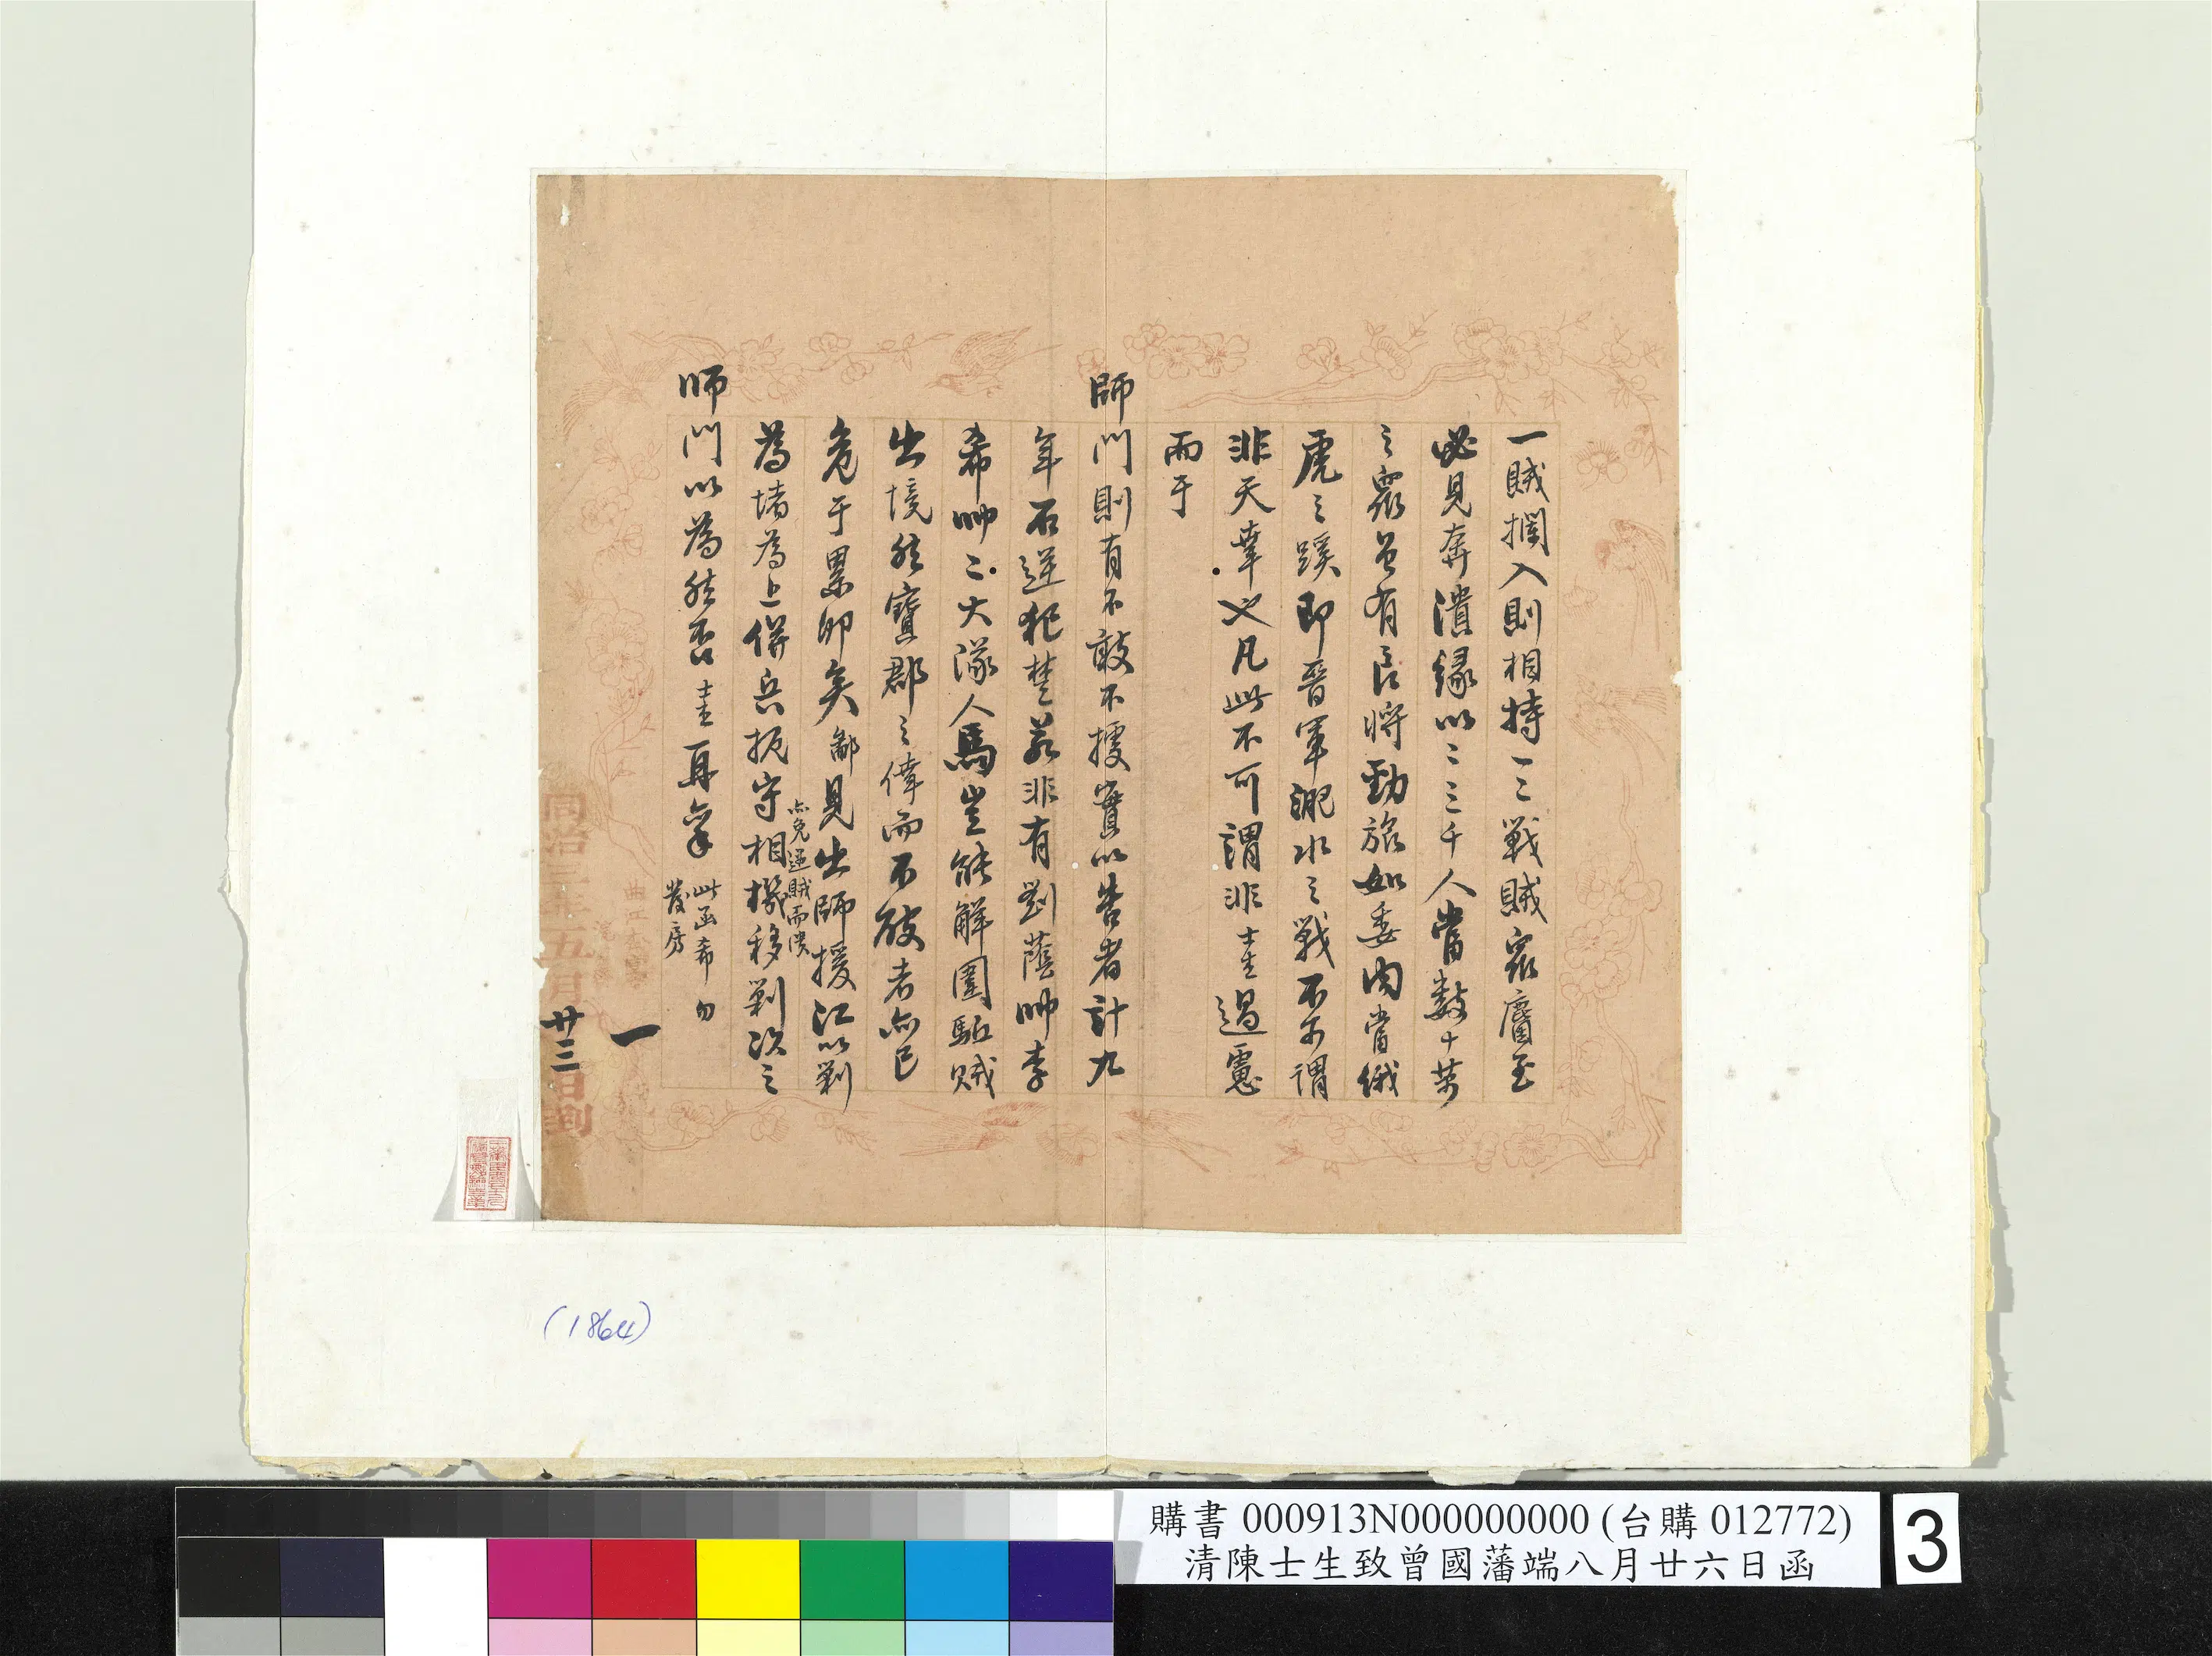 一賊攔入則相持一二戰賊眾麕至
必見奔潰緣以二三千人當數十萬
之眾曾有良將勁旅如委肉當餓
虎之蹊即晉軍淝水之戰不可謂
非天幸也凡此不可謂非士生過慮
而于
師門則有不敢不據實以告者計九
年石逆犯楚若非有劉蔭帥李
希帥二大隊人馬豈能解圍駈賊
出境然寶郡之倖而不破者亦已
危于累卵矣鄙見出師援江以剿
為堵為上併兵扼守相機移剿次之
亦免逼賊而潰
師門以為然否士生再稟
此函希勿
發房
一
同治三年五月廿三日到
(1864)
購書 000913N000000000 (台購 012772)
清陳士生致曾國藩端八月廿六日函
3